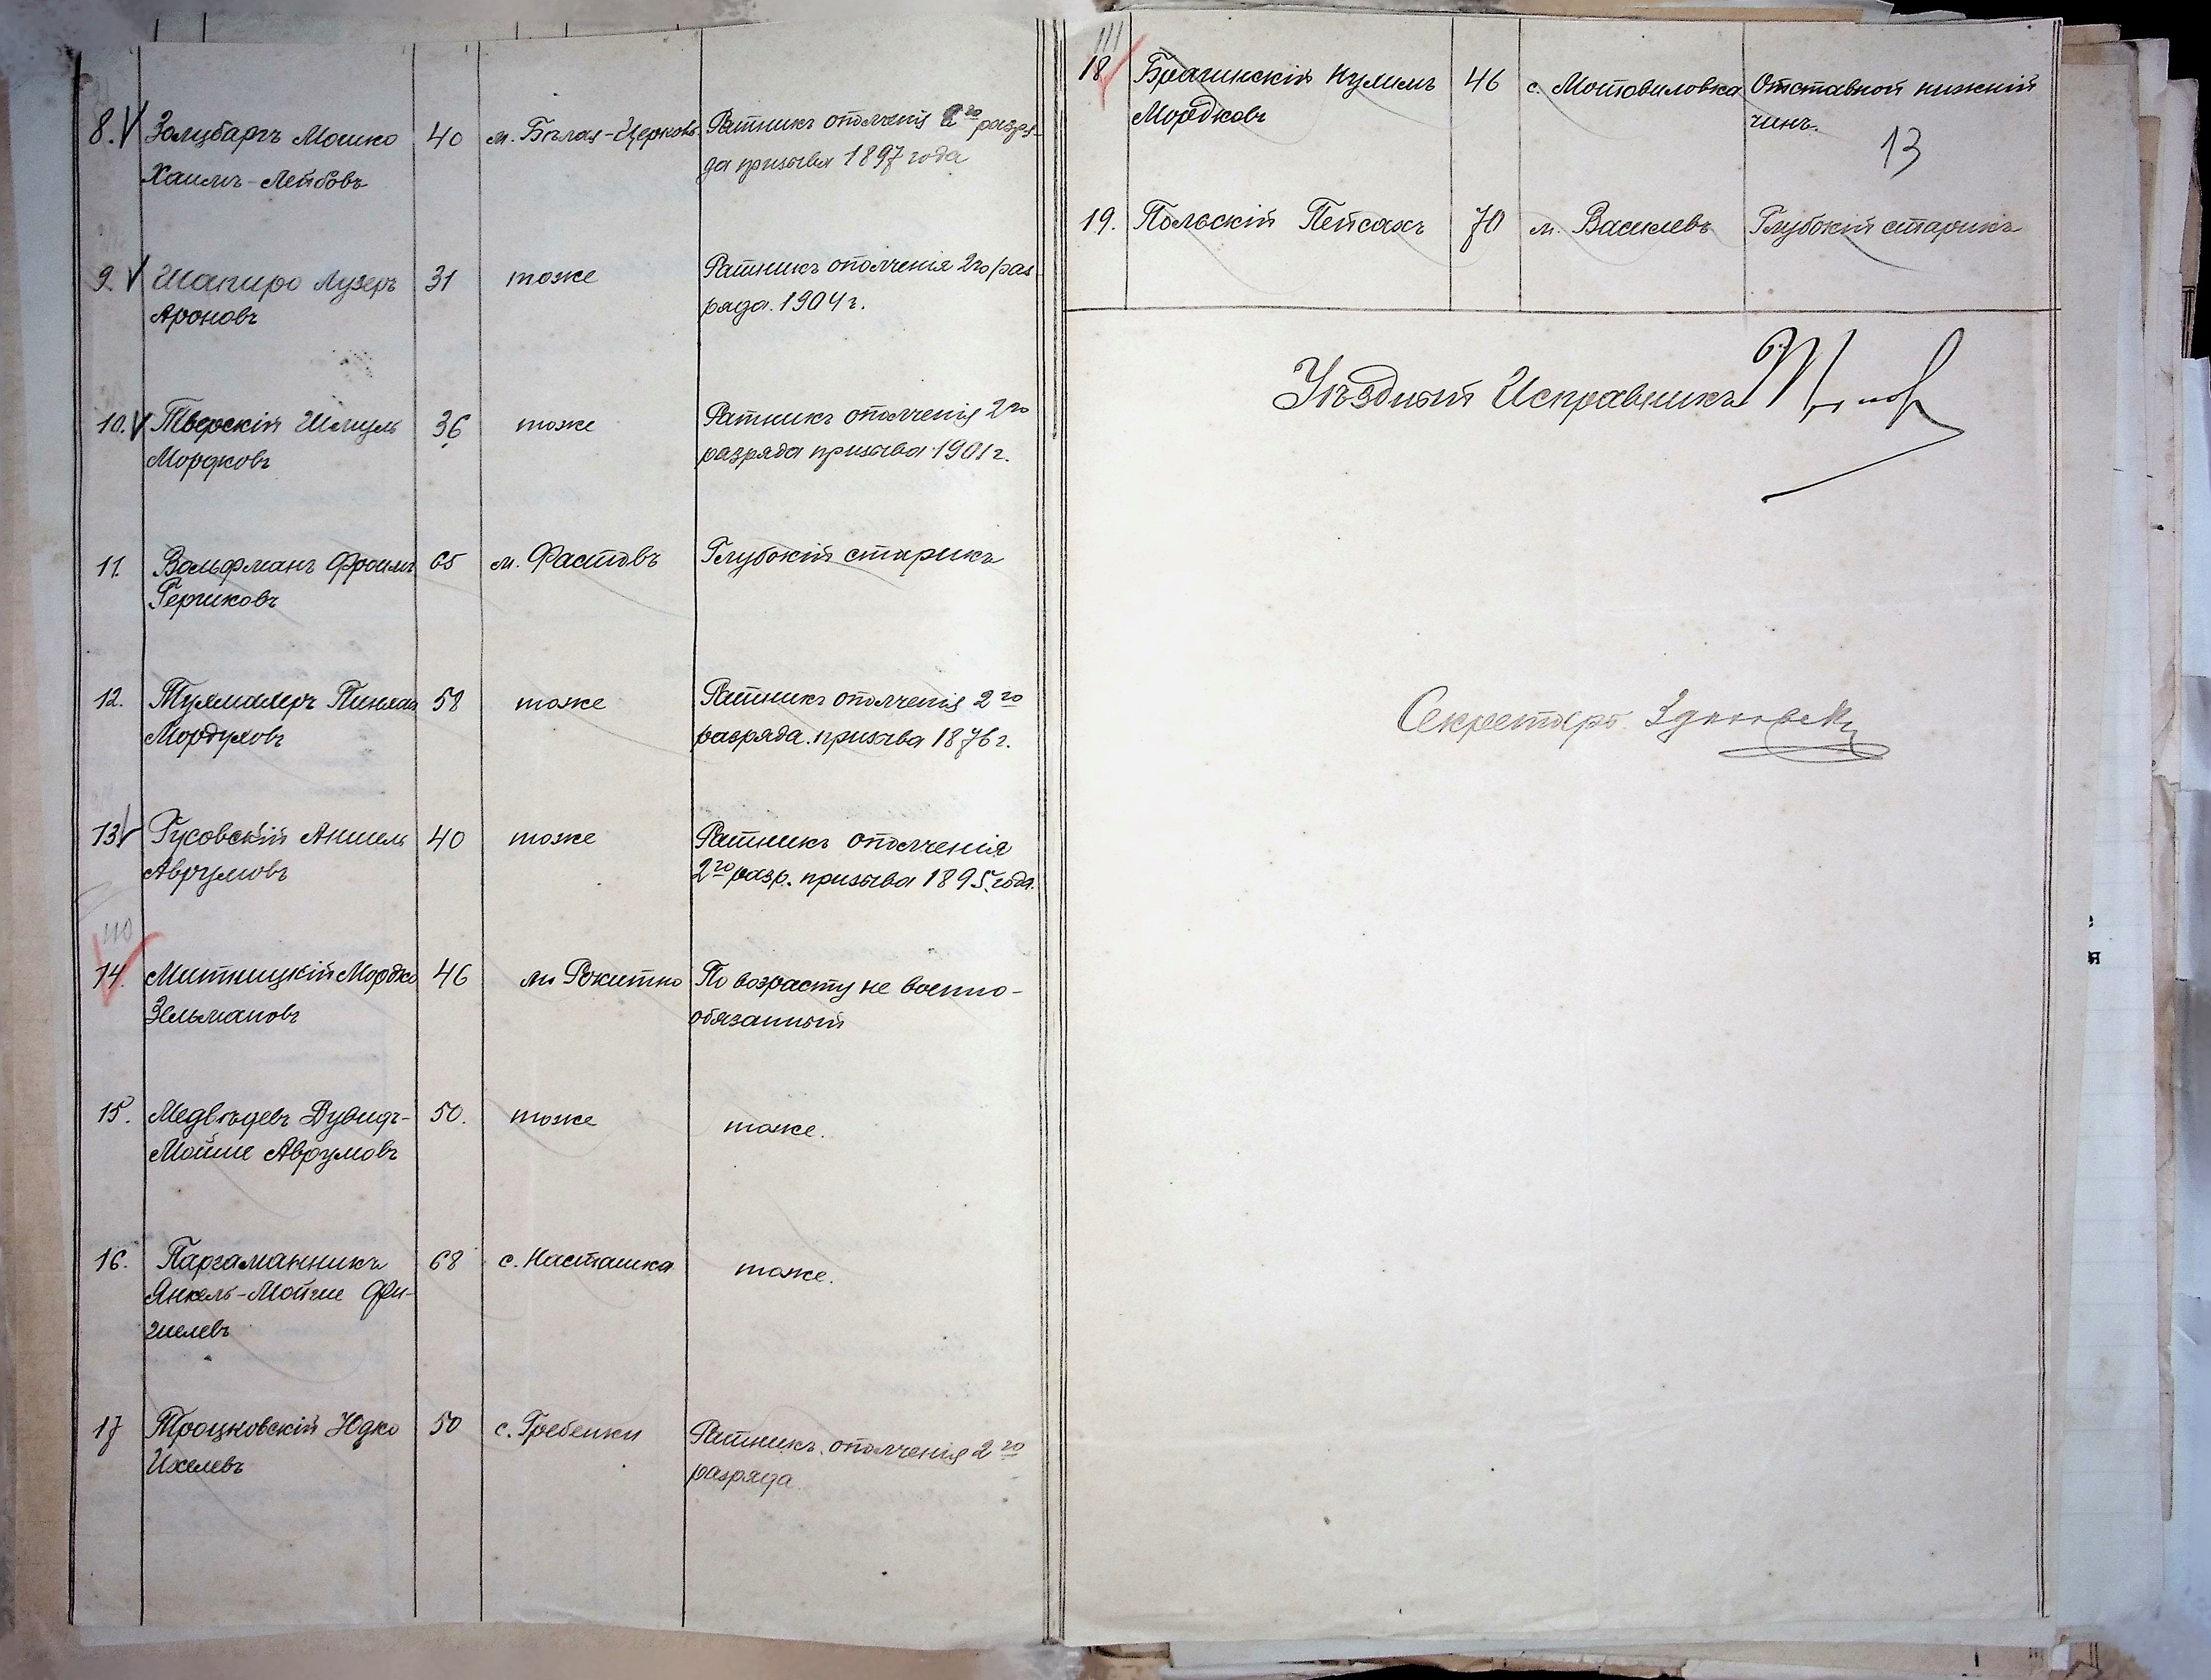 8. Золубаръ Мошко 40 м. Бѣлая-Церковь Ратникъ ополченія 2го разря-
Хаимъ-Лейбовъ да призыва 1897 года
9. Шапиро Лузеръ 31 тоже Ратникъ ополченія 2го раз
Ароновъ ряда. 1904 г.
10. Тверскій Шмуль 36 тоже Ратникъ ополченія 2го
Мордковъ разряда призыва 1901 г.
11. Вольфманъ Фроимъ 65 м. Фастовъ Глубокій старикъ
Гершковъ
12. Пинхас 58 тоже Ратникъ ополченія 2го
Мордуховъ разряда. призыва 1876 г.
13 Гусовскій Аншель 40 тоже Ратникъ ополченія
Аврумовъ 2го разр. призыва 1895 года.
110
14. Митницкій Мордко 46 м. Рокитно По возрасту не военно-
Зельмановъ обязанный
15. Медвѣдевъ Дувидъ- 50. тоже тоже.
Мойше Аврумовъ
16. Паргаманникъ 68 с. Насташка тоже.
Янкель-Мойше Фи-
шелевъ
17 Троцковскій Юдко 50 с. Гребенки Ратникъ ополченія 2го
Ихелевъ разряда
111
18 Брагинскій Нухимъ 46 с. Мотовиловка Отставной нижній
Мордковъ чинъ.
13
19. Польскій Пейсахъ 70 м. Василевъ Глубокій старикъ
Уѣздный Исправникъ
Секретарь